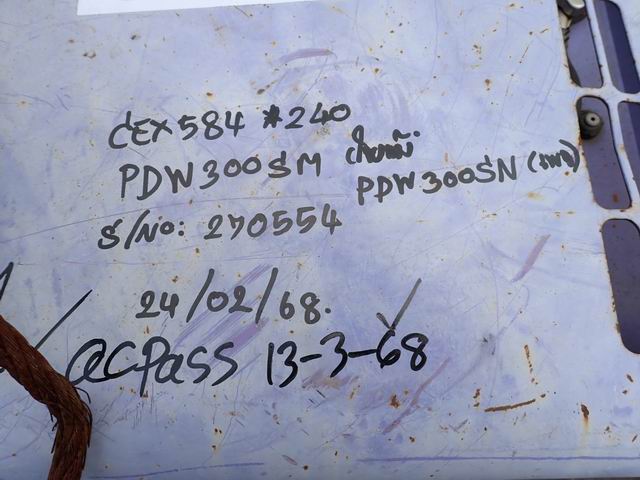 CEX584 #240
PDW300SM
PDW300SN
S/No: 270554
24/02/68.
QCPass 13-3-68